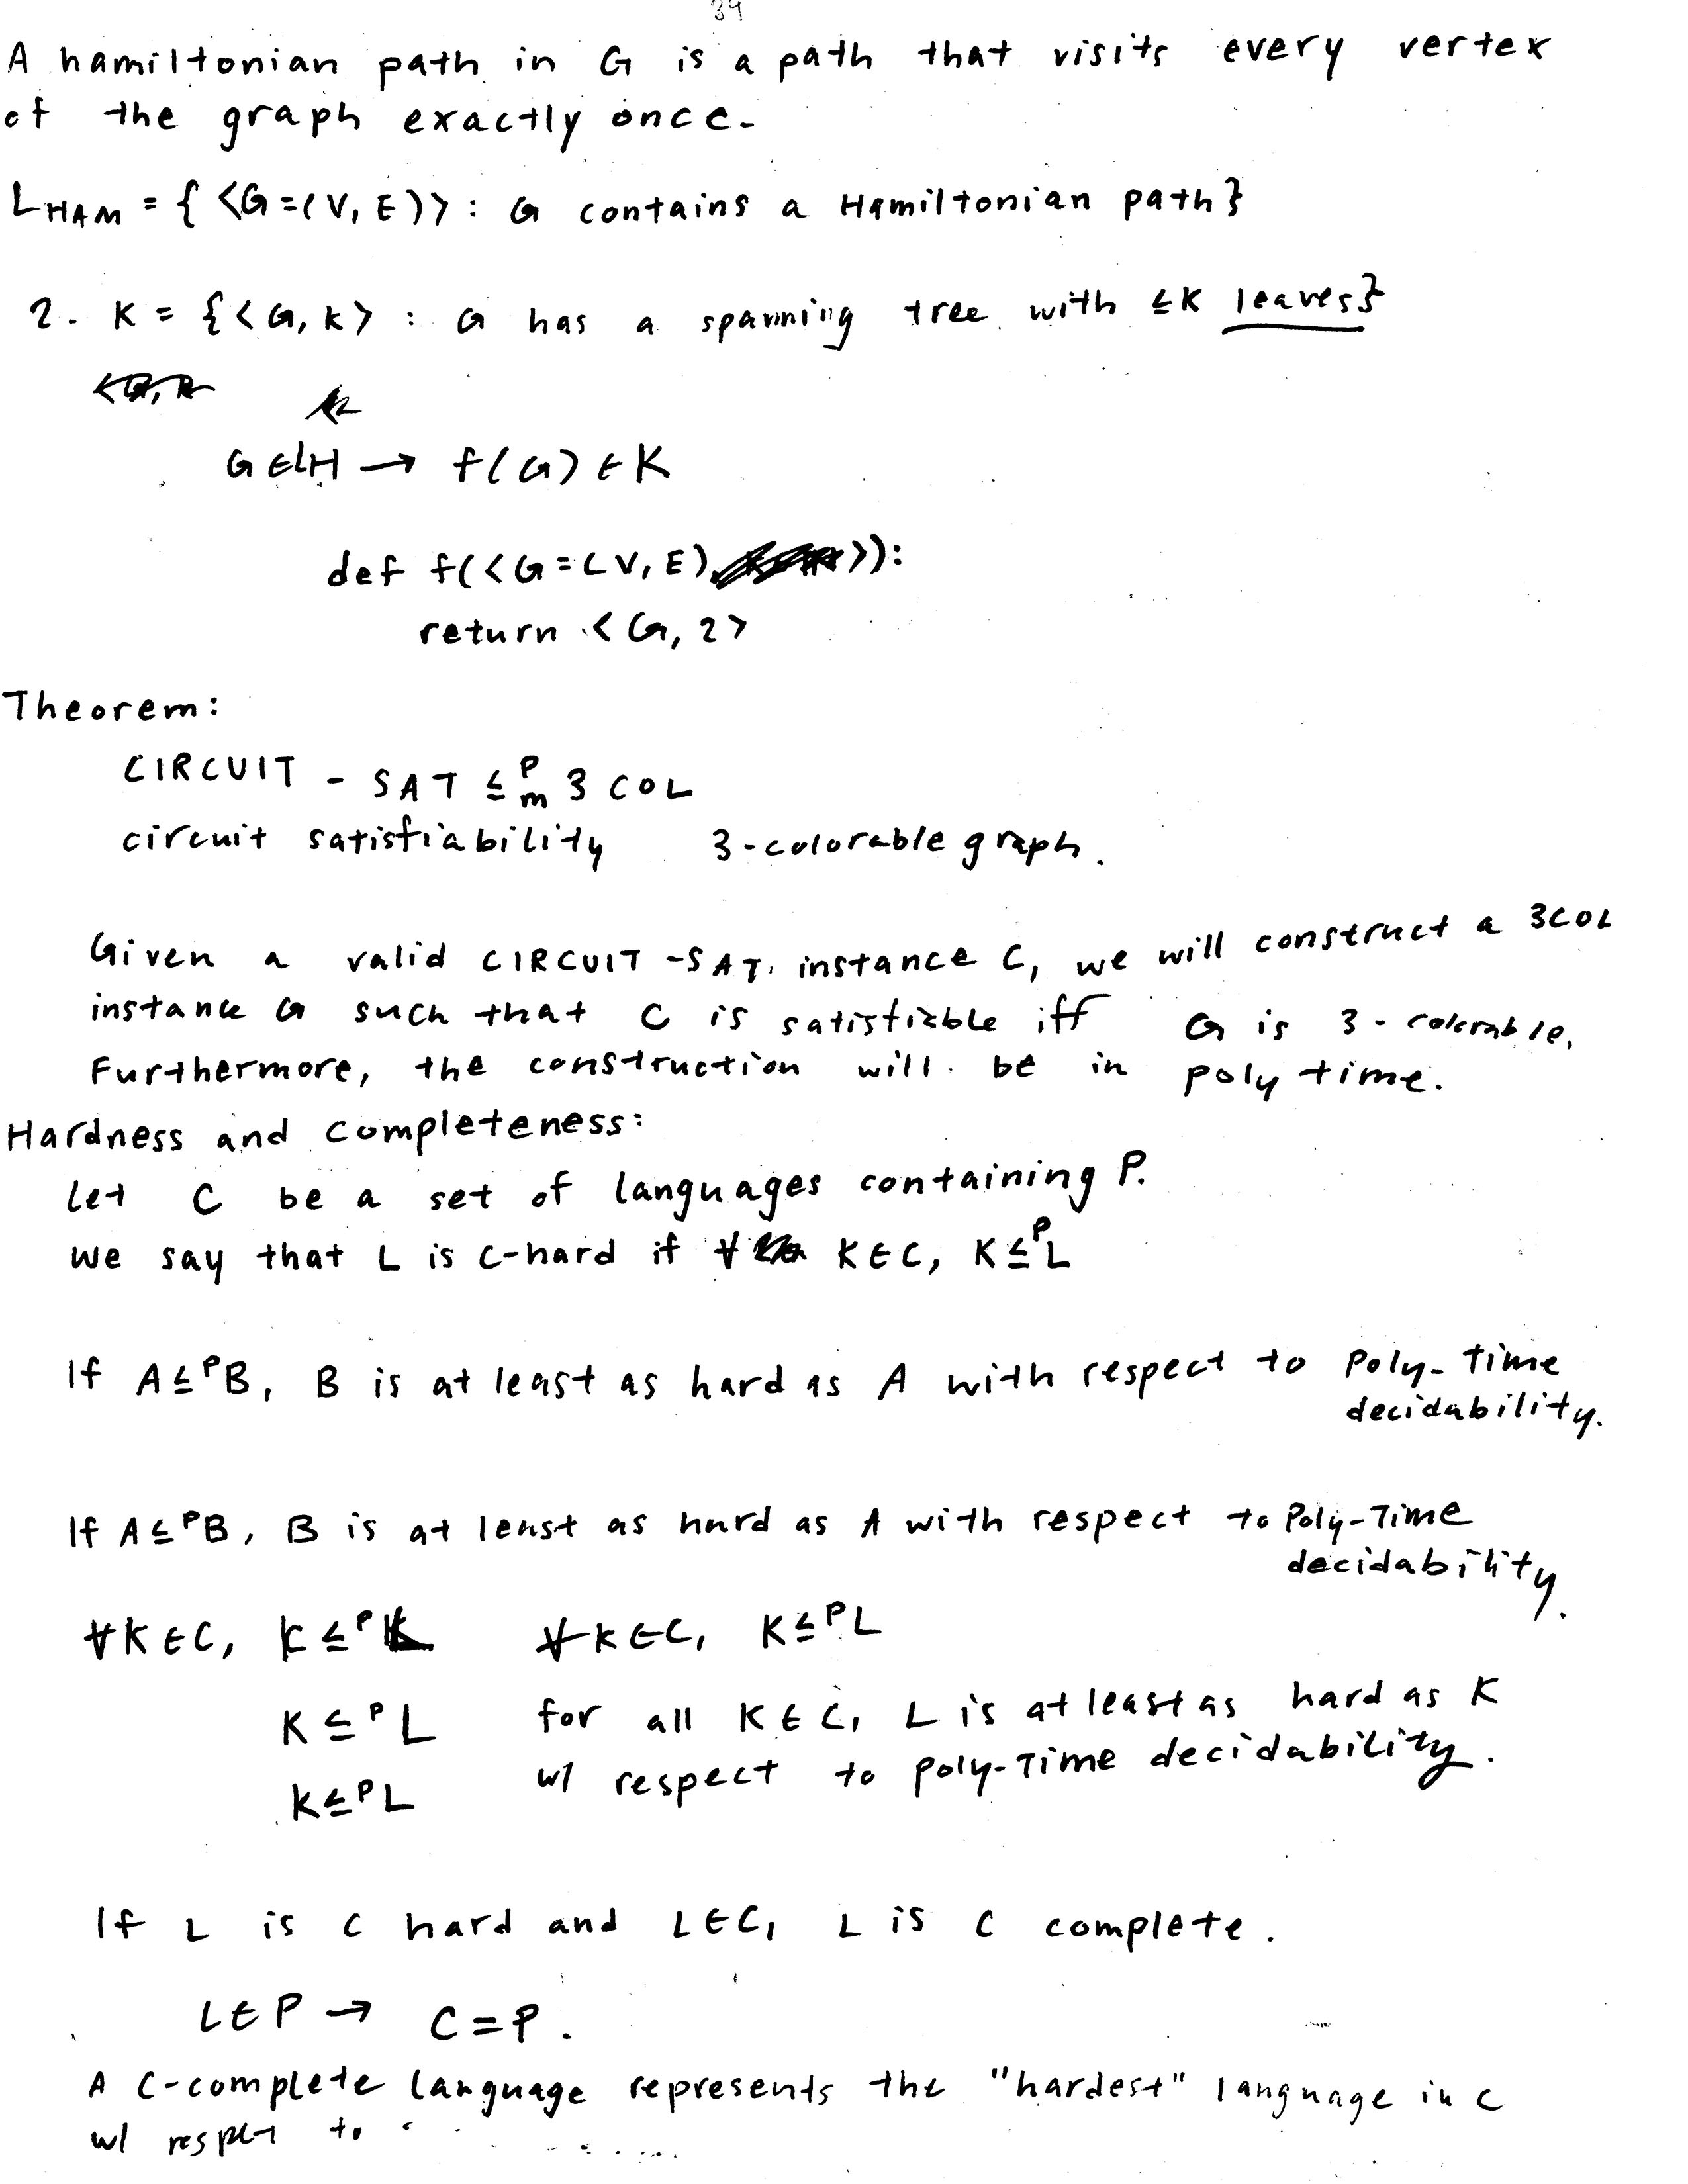 34
A hamiltonian path in G is a path that visits every vertex
of the graph exactly once.
L_HAM = { <G=(V, E)> : G contains a Hamiltonian path}
2. K = {<G, k> : G has a spanning tree with ≤K leaves}
G ∈ LH → f(G) ∈ K
def f(<G=(V, E)>):
return <G, 2>
Theorem:
CIRCUIT - SAT ≤ᵖₘ 3 COL
circuit satisfiability 3-colorable graph.
Given a valid CIRCUIT-SAT instance C, we will construct a 3COL
instance G such that C is satisfiable iff G is 3-colorable.
Furthermore, the construction will be in poly time.
Hardness and completeness:
Let C be a set of languages containing P.
we say that L is C-hard if ∀ K ∈ C, K ≤ᵖ L
If A ≤ᵖ B, B is at least as hard as A with respect to Poly-Time
decidability.
If A ≤ᵖ B, B is at least as hard as A with respect to Poly-Time
decidability.
∀K ∈ C, K ≤ᵖ ∀K ∈ C, K ≤ᵖ L
K ≤ᵖ L for all K ∈ C, L is at least as hard as K
K ≤ᵖ L w/ respect to poly-Time decidability.
If L is C hard and L ∈ C, L is C complete.
L ∈ P → C = P.
A C-complete language represents the "hardest" language in C
w/ respect to